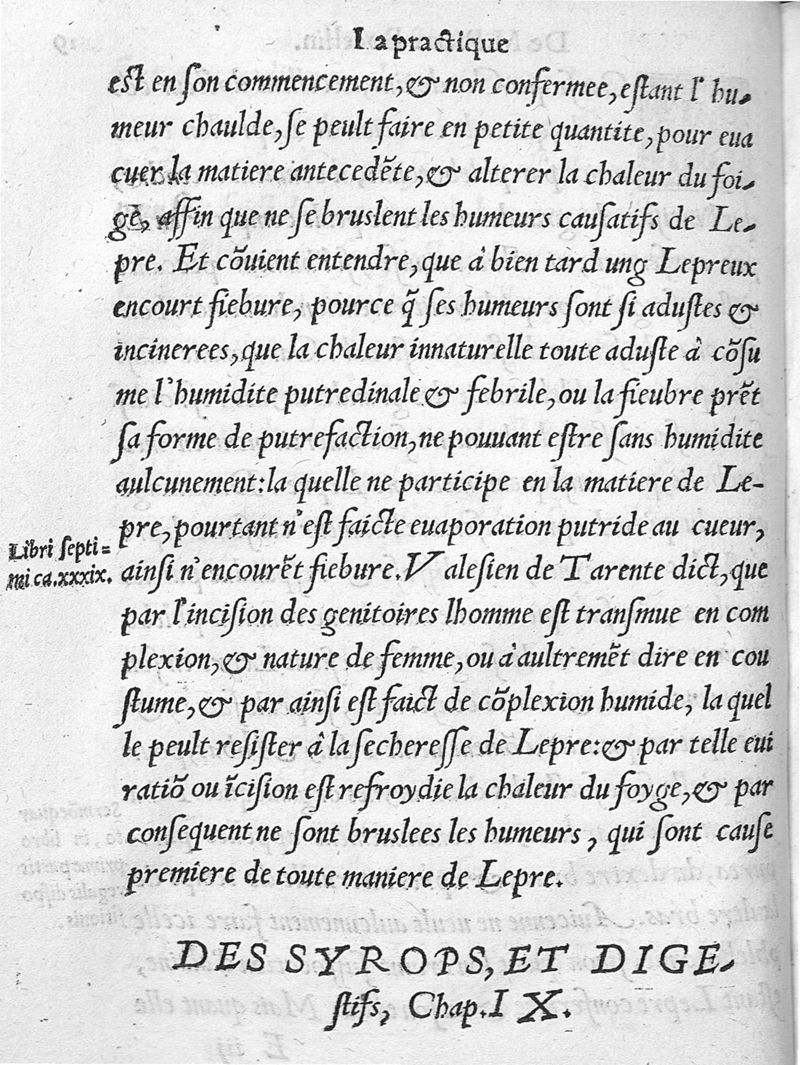 La practique
est en son commencement, & non confermee, estant l'hu-
meur chaulde, se peult faire en petite quantite, pour eua
cuer la matiere antecedẽte, & alterer la chaleur du foi-
ge, affin que ne se bruslent les humeurs causatifs de Le-
pre. Et cõuient entendre, que à bien tard ung Lepreux
encourt fiebure, pource q̃ ses humeurs sont si adustes &
incinerees, que la chaleur innaturelle toute aduste à cõsu
me l'humidite putredinale & febrile, ou la fieubre prẽt
sa forme de putrefaction, ne pouuant estre sans humidite
aulcunement: la quelle ne participe en la matiere de Le-
pre, pourtant n'est faicte euaporation putride au cueur,
Libri septi=
mi ca.xxxix.
ainsi n'encourẽt fiebure. Valesien de Tarente dict, que
par l'incision des genitoires lhomme est transmue en com
plexion, & nature de femme, ou à aultremẽt dire en cou
stume, & par ainsi est faict de cõplexion humide, la quel
le peult resister à la secheresse de Lepre: & par telle eui
ratiõ ou ĩcision est refroydie la chaleur du foyge, & par
consequent ne sont bruslees les humeurs, qui sont cause
premiere de toute maniere de Lepre.
DES SYROPS, ET DIGE-
stifs, Chap. IX.